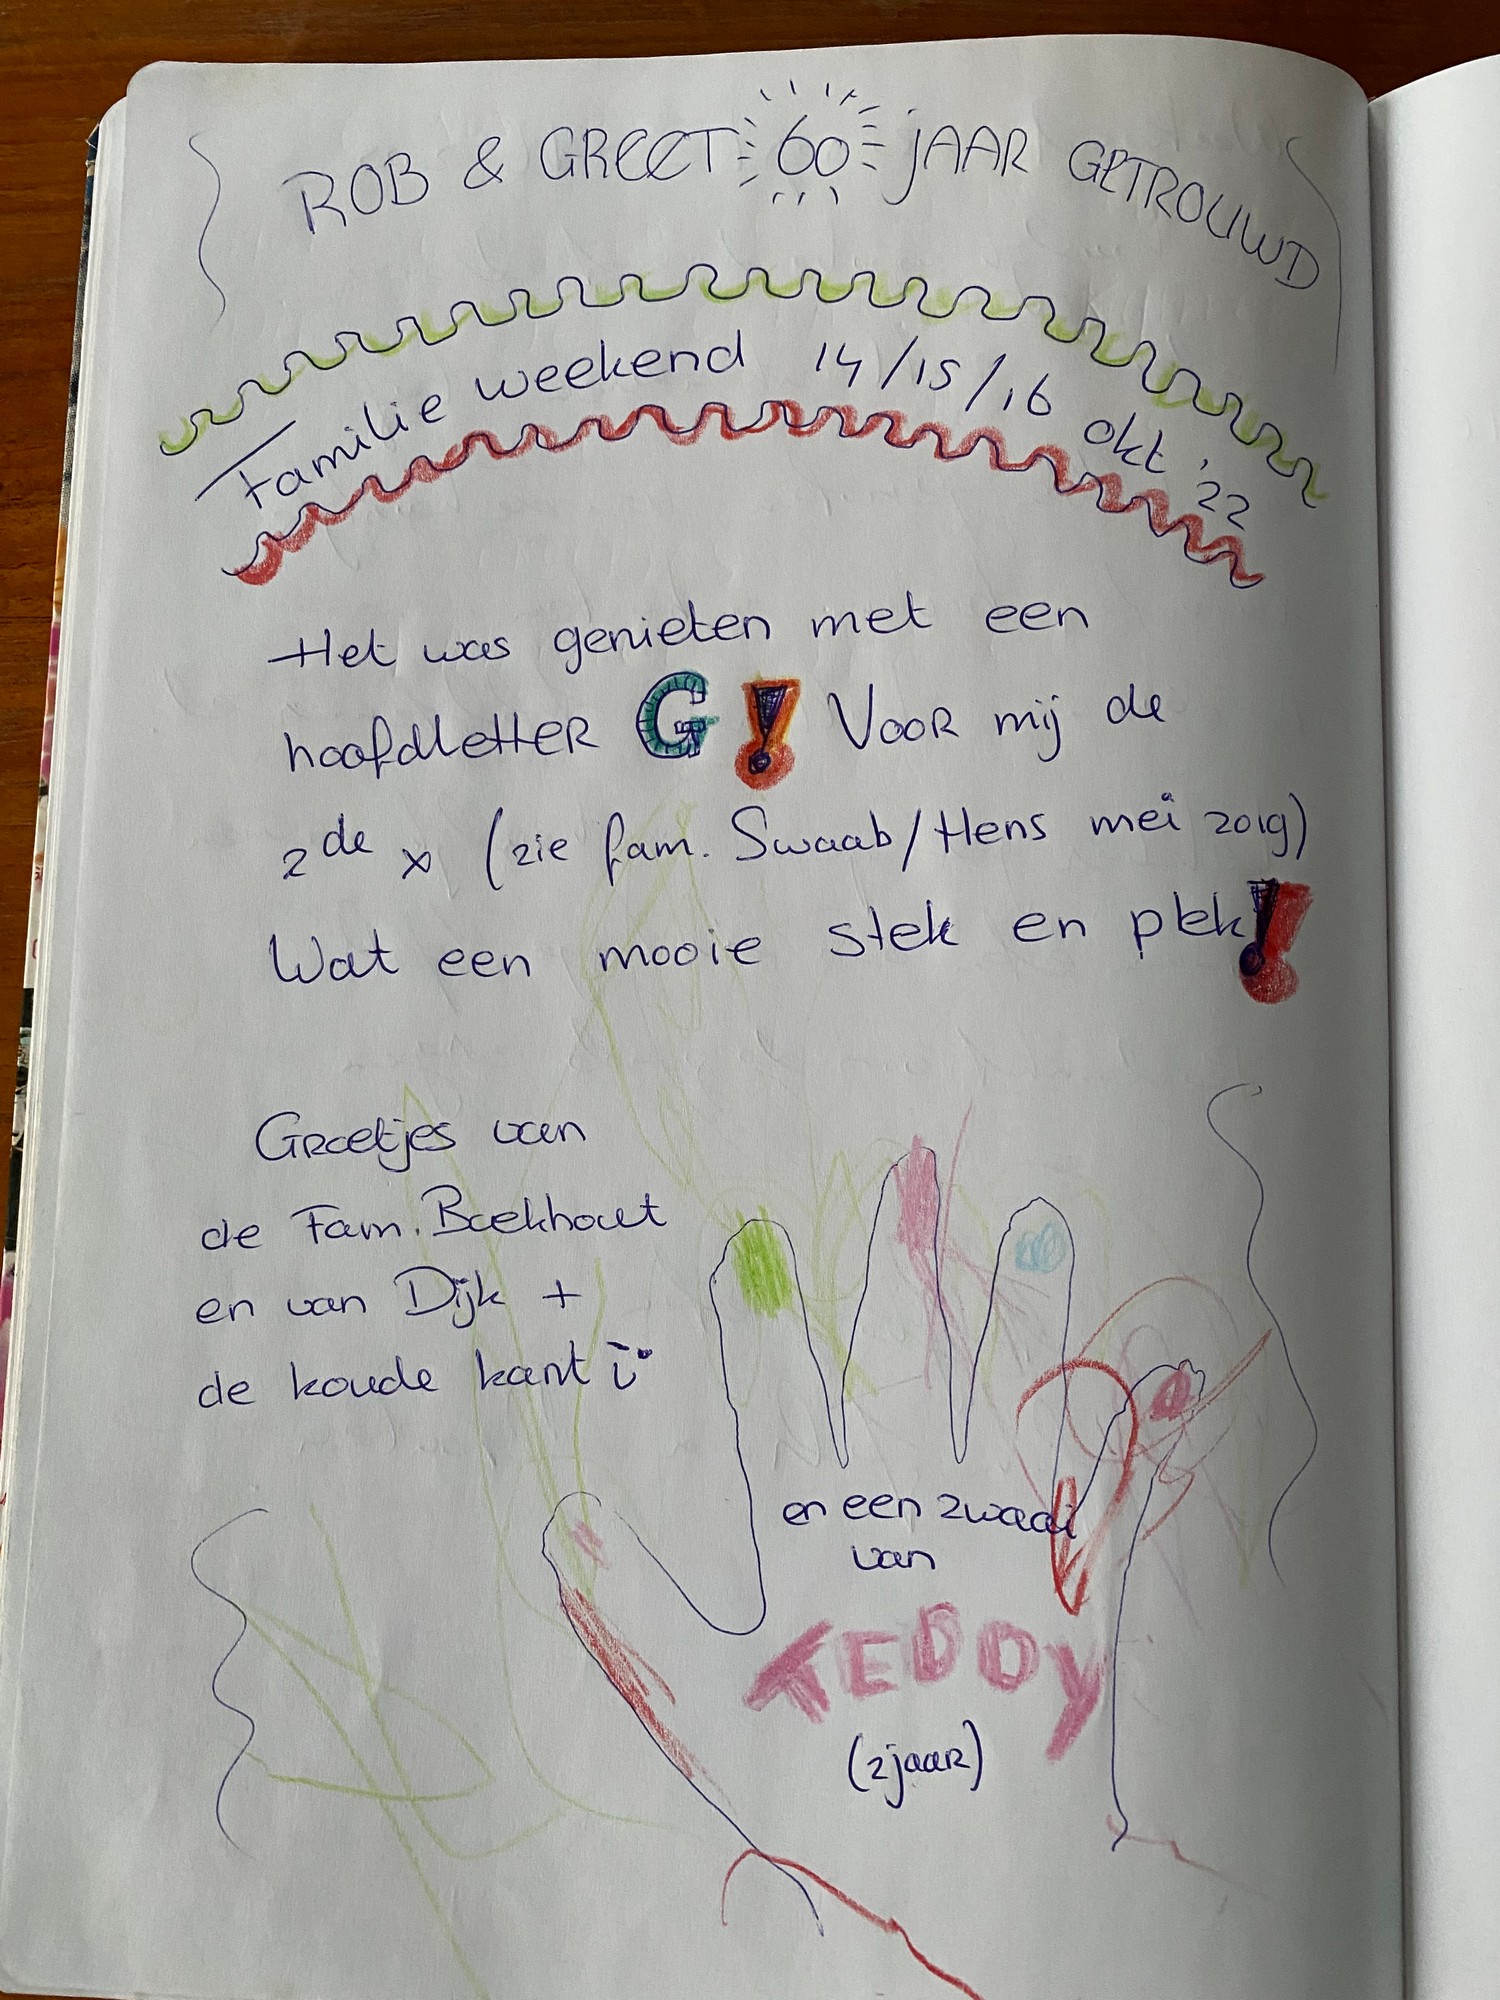 ROB & GREET 60 JAAR GETROUWD
Familie weekend 14/15/16 okt '22
Het was genieten met een
hoofdletter G! Voor mij de
2de x (zie fam. Swaab/Hens mei 2019)
Wat een mooie stek en plek!
Groetjes van
de Fam. Boekhout
en van Dijk +
de koude kant
en een zwaai
van
TEDDY
(2jaar)